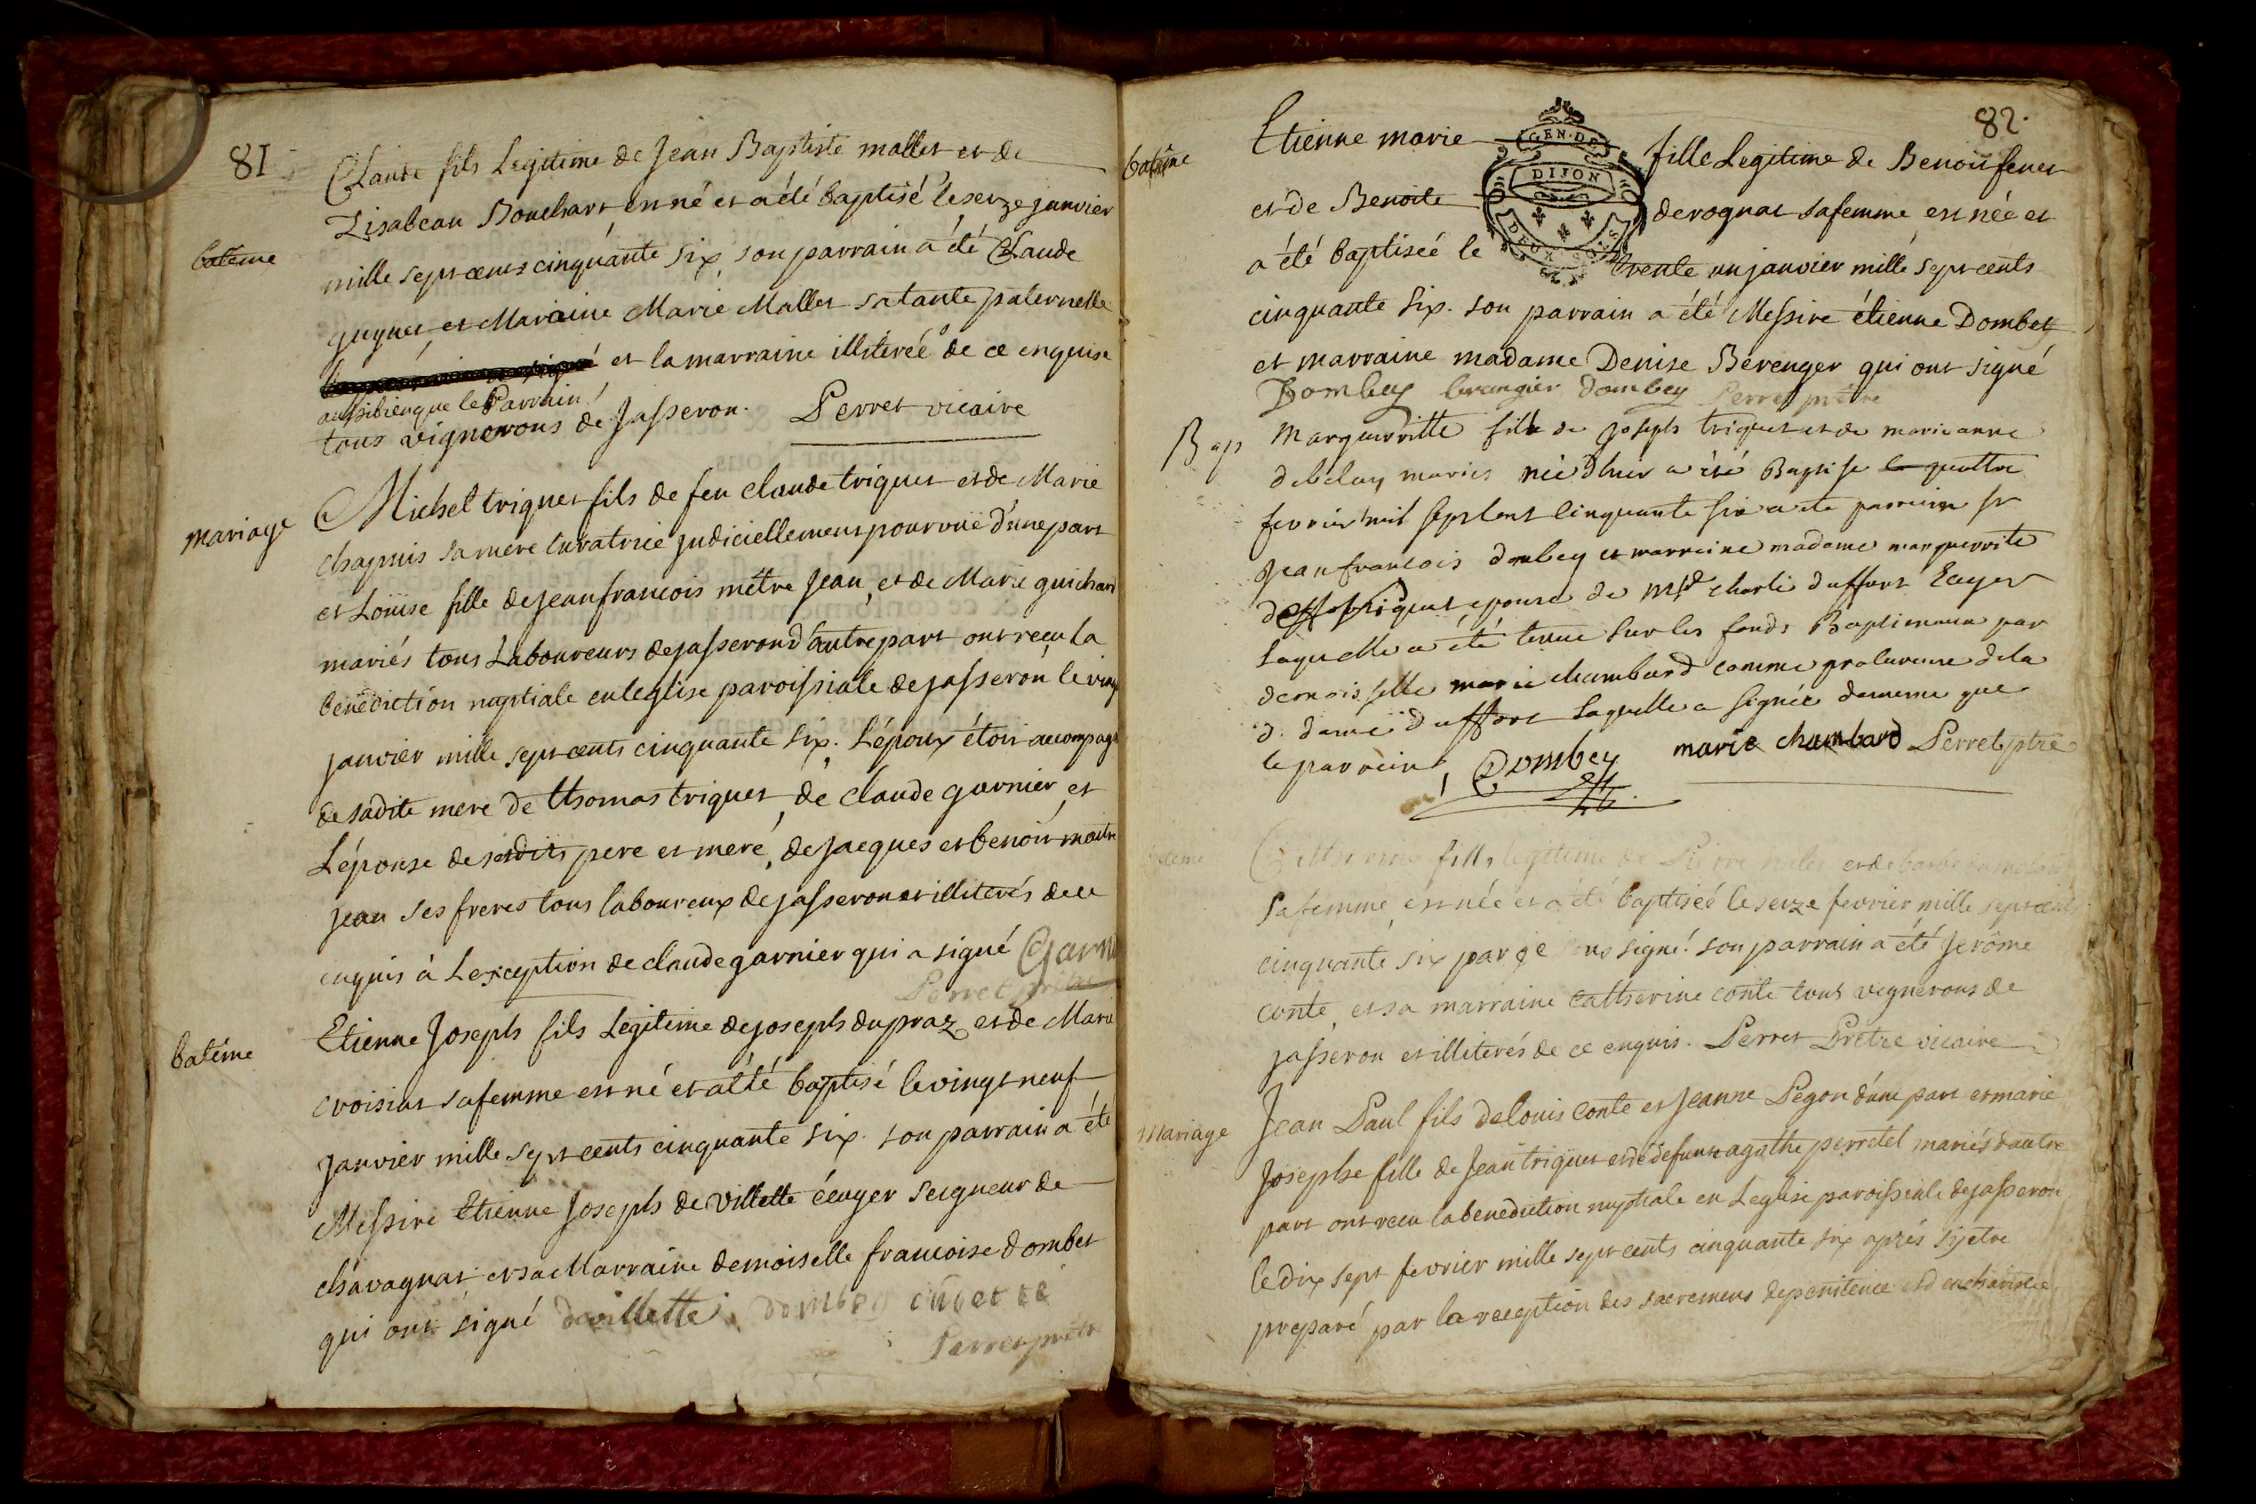 81
Claude fils Legitime de Jean Baptiste mallet et de
Lisabeau Bouchart est né et a été baptisé le seize janvier
batême
mille sept cents cinquante six, son parrain a été Claude
et Maraine Marie Mallet sa tante paternelle
et la marraine illiterée de ce enquise
aussi bien que le Parrain
tous vignerons de Jasseron. Perret vicaire
mariage
Michel triquet fils de feu claude triquet et de Marie
chapuis sa mere curatrice judiciellement pourvuë d'une part
et Loüise fille de Jean francois mêtre Jean, et de Marie guichar
mariés tous Laboureurs de jasseron d'autre part ont recu la
bénédiction nuptiale en leglise paroissiale de jasseron le ving
janvier mille sept cents cinquante six. L'époux étoit accompag
de sadite mere de thomas triquet, de claude garnier et
L'épouse de sesdits pere et mere, de jacques et benoit maitre
jean ses freres tous laboureux de jasseron et illiterés de ce
enquis à L'exception de claude garnier qui a signé Garni
Perret prêtre
batême
Etienne Joseph fils Legitime de joseph dupraz et de Marie
croisiat sa femme est né et a été baptisé le vingt neuf
janvier mille sept cents cinquante six. son parrain a été
Messire Etienne Joseph de Villette écuyer seigneur de
chavagnat et sa Marraine demoiselle francoise dombet
qui ont signé devillette dombey
Perret prêtr
82.
batême
Etienne marie fille Legitime de Benoit
GEN. DE DIJON
DEUX SOLS
et de Benoite derognat sa femme est née et
a été baptiseé le trente un janvier mille sept cents
cinquante six. son parrain a été Messire étienne Dombey
et marraine madame Denise Bérenger qui ont signé
Dombey berangier dombey Perret prêtre
Bap
Marguerritte fille de joseph triquet et de marie anne
debelay maries née d'hier a été Baptise le quattre
fevrier mil sept cent cinquante six a été parrain sr
jean francois dombey et marreine madame marguerrite
epouse de Mr charle duffort Ecuyer
laquelle a été tenue sur les fonds Baptimaux par
demoiselle marie chambard comme procureuse de la
d. dame duffort laquelle a signée de meme que
le parrein Dombey marie chambard Perret ptre
fille legitime de Pierre
sa femme, est née et a été baptiseé le seize fevrier mille sept cents
cinquante six par je signé. son parrain a été Jerôme
conte, et sa marraine Catherine conte tous vignerons de
jasseron et illiterés de ce enquis. Perret Prêtre vicaire
Mariage
Jean Paul fils de Louis Conte et Jeanne Pegon d'une part et marie
josephe fille de Jean triquet et de defunte agathe perretel mariés d'autre
part ont recu la benediction nuptiale en Leglise paroissiale de jasseron
le dix sept fevrier mille sept cents cinquante six aprés s'y etre
preparé par la reception des sacremens de penitence et d'eucharistie